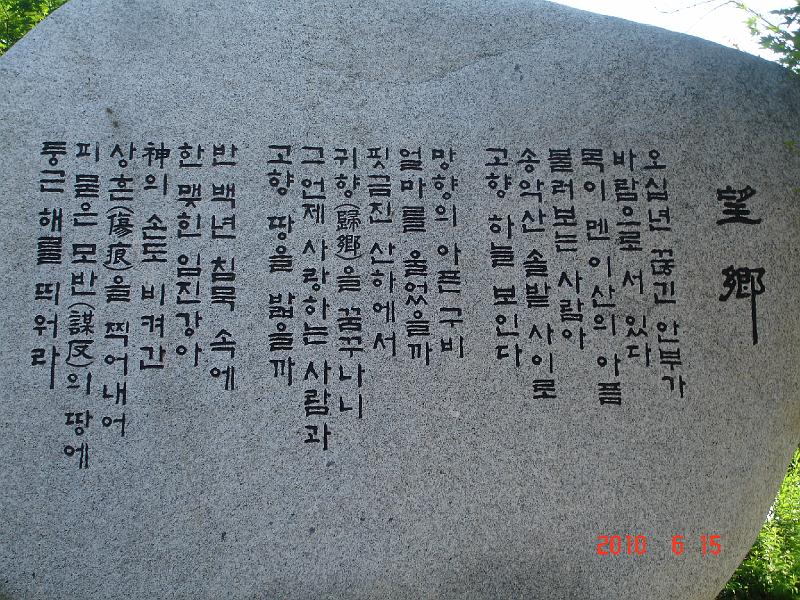 望鄕
오십년 끊긴 안부가
바람으로 서 있다
목이 멘 이산의 아픔
불러보는 사람아
송악산 솔밭 사이로
고향 하늘 보인다
망향의 아픈 구비
얼마를 울었을까
핏금진 산하에서
귀향(歸鄕)을 꿈꾸나니
그 언제 사랑하는 사람과
고향 땅을 밟을까
반 백년 침묵 속에
한 맺힌 임진강아
神의 손도 비켜간
상흔(傷痕)을 찍어내어
피 묻은 모반(謀反)의 땅에
둥근 해를 띄워라
2010 6 15